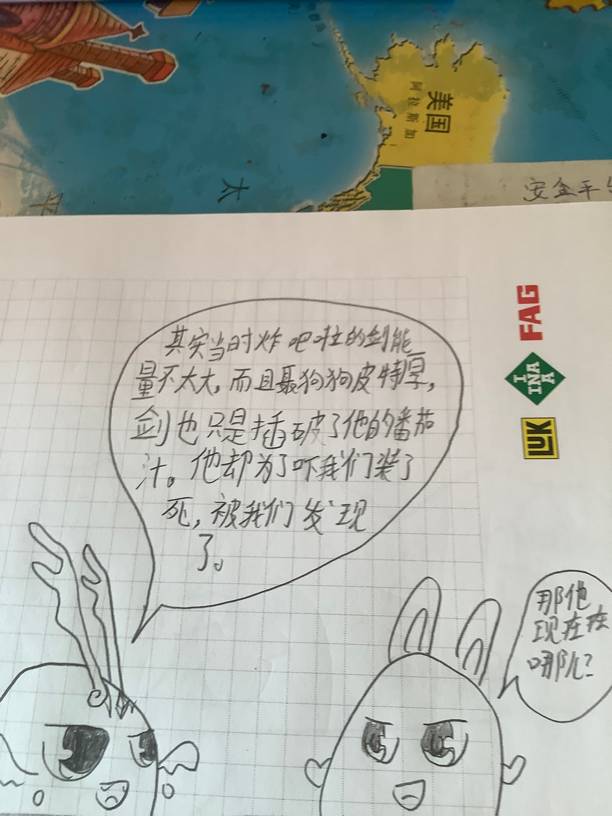 美国
阿拉斯加
太
平
安全手
FAG
INA
LUK
其实当时炸吧啦的剑能
量不太大，而且聂狗狗皮特厚，
剑也只是插破了他的番茄
汁。他却为了吓我们装了
死，被我们发现
了。
那他
现在在
哪儿？